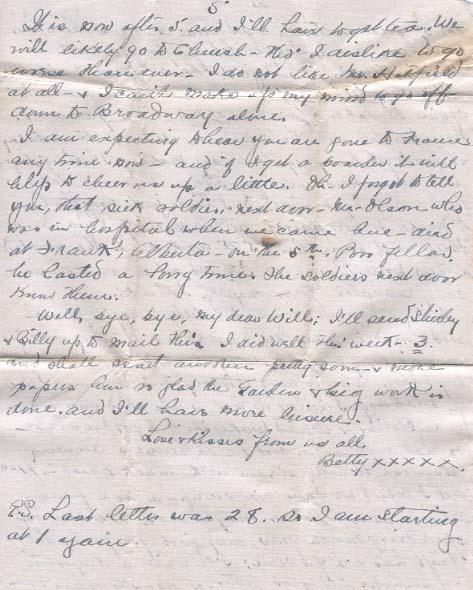 5
It is now after 5. and I'll have to get tea. We
will likely go to Church - tho' I dislike to go
worse than ever - I do not like Mr. Hatfield
at all - & I can't make up my mind to go off
down to Broadway alone.
I am expecting to hear you are gone to France
any time now - and if I get a boarder it will
help to cheer us up a little. Oh - I forgot to tell
you, that sick soldier next door - Mr. Olson who
was in hospital when we came here - died
at Frank, Alberta - on the 5th. Poor fellow.
he lasted a long time. The soldiers next door
knew them.
Well, bye, bye, my dear Will; I'll send Shirley
& Billy up to mail this. I did well this week - 3.
and shall start another pretty soon - & more
papers. I'm so glad the Garden & big work is
done. and I'll have more leisure.
Love & Kisses from us all.
Betty x x x x x.
P.S. Last letter was 28. so I am starting
at 1 again.